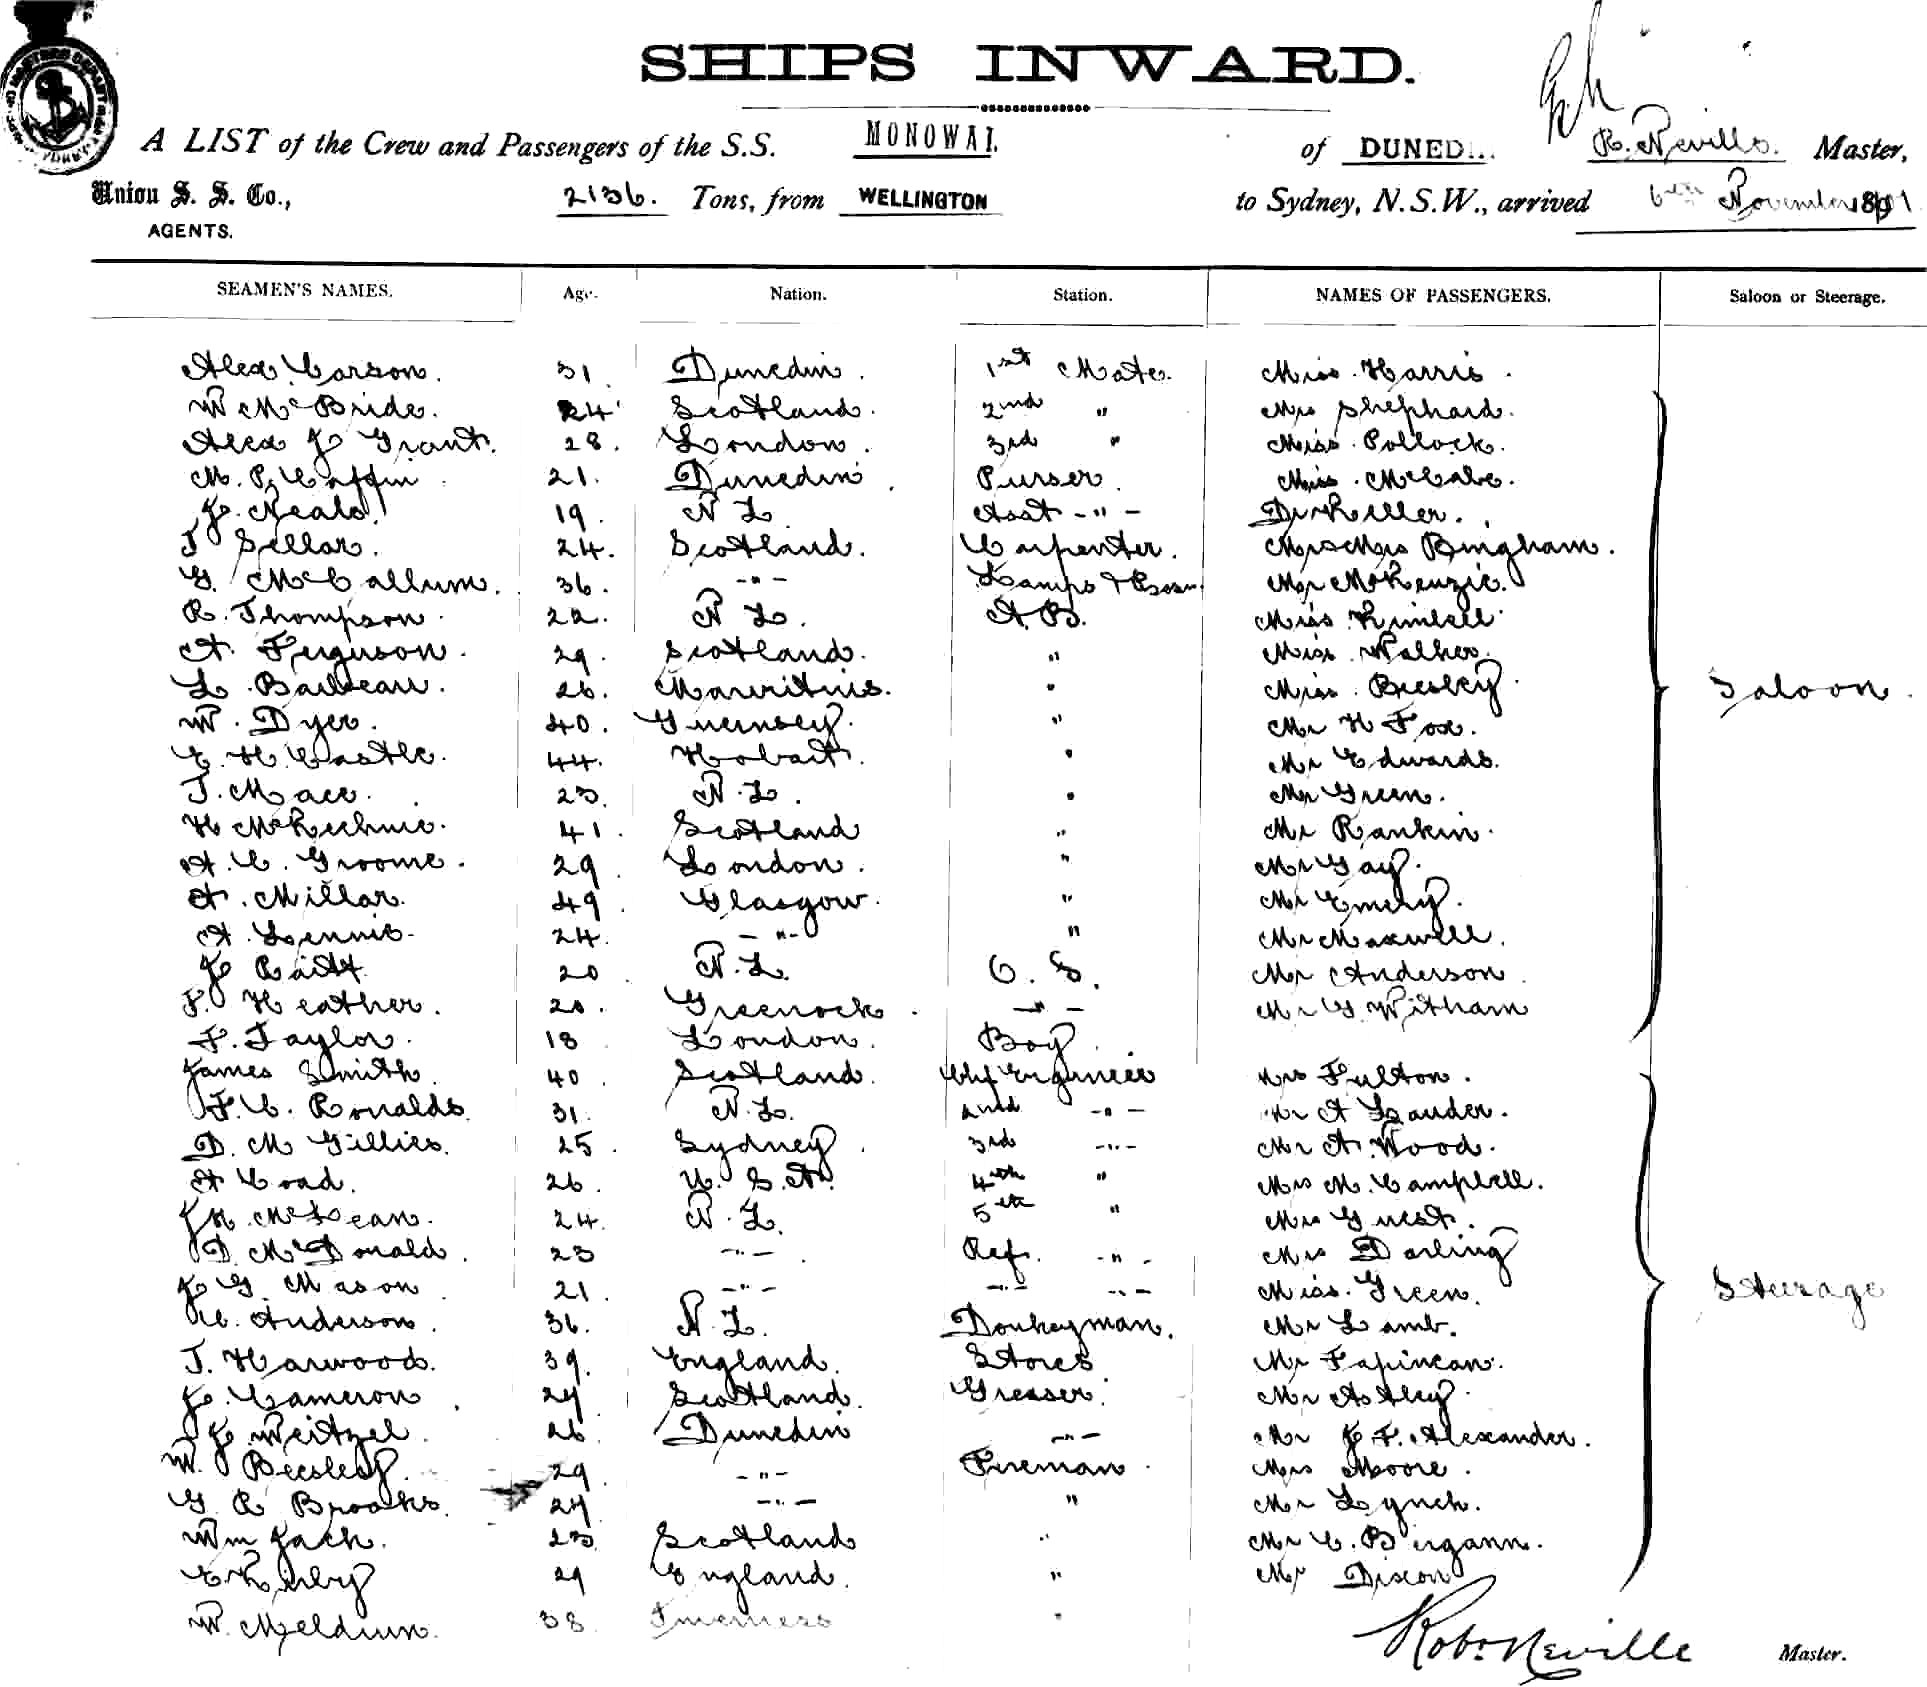 SHIPS INWARD.
A LIST of the Crew and Passengers of the S.S. MONOWAI. of DUNED... R. Neville. Master,
Union S. S. Co., 2136. Tons, from WELLINGTON to Sydney, N.S.W., arrived 6th November 1891
AGENTS.
SEAMEN'S NAMES. Age. Nation. Station. NAMES OF PASSENGERS. Saloon or Steerage.
Alex Carson. 31. Dunedin. 1st Mate. Miss Harris.
W McBride. 24 Scotland. 2nd " Mrs Shephard.
Alex J Grant. 28. London. 3rd " Miss Pollock.
M. P. Caffin 21. Dunedin. Purser. Miss McCabe.
J. Neale. 19. N Z. Asst -"- Dr Keller.
J Sellar. 24. Scotland. Carpenter. Mr & Mrs Bingham.
G. McCallum. 36. -"- Lamps & Bosun Mr McKenzie.
R. Thompson. 22. N Z. A.B. Miss Kimbell
A. Ferguson. 29. Scotland. " Miss Walker.
L. 26. Mauritius. " Miss Beesley. Saloon.
W. Dyer. 40. Guernsey. " Mr H Fox.
E. H. Castle. 44. Hobart. " Mr Edwards.
J. Mace. 23. N.Z. " Mr Green.
H McKechnie. 41. Scotland " Mr Rankin.
A. C. Groome. 29 London. " Mr Gay.
A. Millar. 49. Glasgow. " Mr Emery.
A. Lennie. 24. -"- " Mr Maxwell.
J Raitt 20 N.Z. O. S. Mr Anderson
F. Heather. 20. Greenock. -"- Mr G Witham
F. Taylor. 18 London. Boy.
James Smith 40. Scotland. Chf Engineer Mrs Fulton.
F. C. Ronalds 31. N.Z. 2nd -"- Mr A Lauder.
D. M Gillies. 25. Sydney. 3rd -"- Mr A. Wood.
A Coad. 26. U. S. A. 4th " Mrs M. Campbell.
J K McLean. 24. N.Z. 5th " Mrs Guest.
D. McDonald. 23 -"- Ref. -"- Mrs Darling
J G. Mason 21. -"- -"- -"- Miss. Green. Steerage
C. Anderson. 36. N.Z. Donkeyman. Mr Lamb.
J. Harwood. 39. England. Stores Mr
J. Cameron. 24 Scotland. Greaser. Mr Astley.
J. Weitzel. 26. Dunedin -"- Mr J F. Alexander.
W. Beesley. 29. -"- Fireman. Mrs Moore.
G R Brooks. 24 -"- " Mr Lynch.
Wm Jack. 23 Scotland " Mr C. Bergann.
E Kirby 29 England. " Mr Dixon
W. Meldrum. 38. Inverness "
Robt Neville Master.